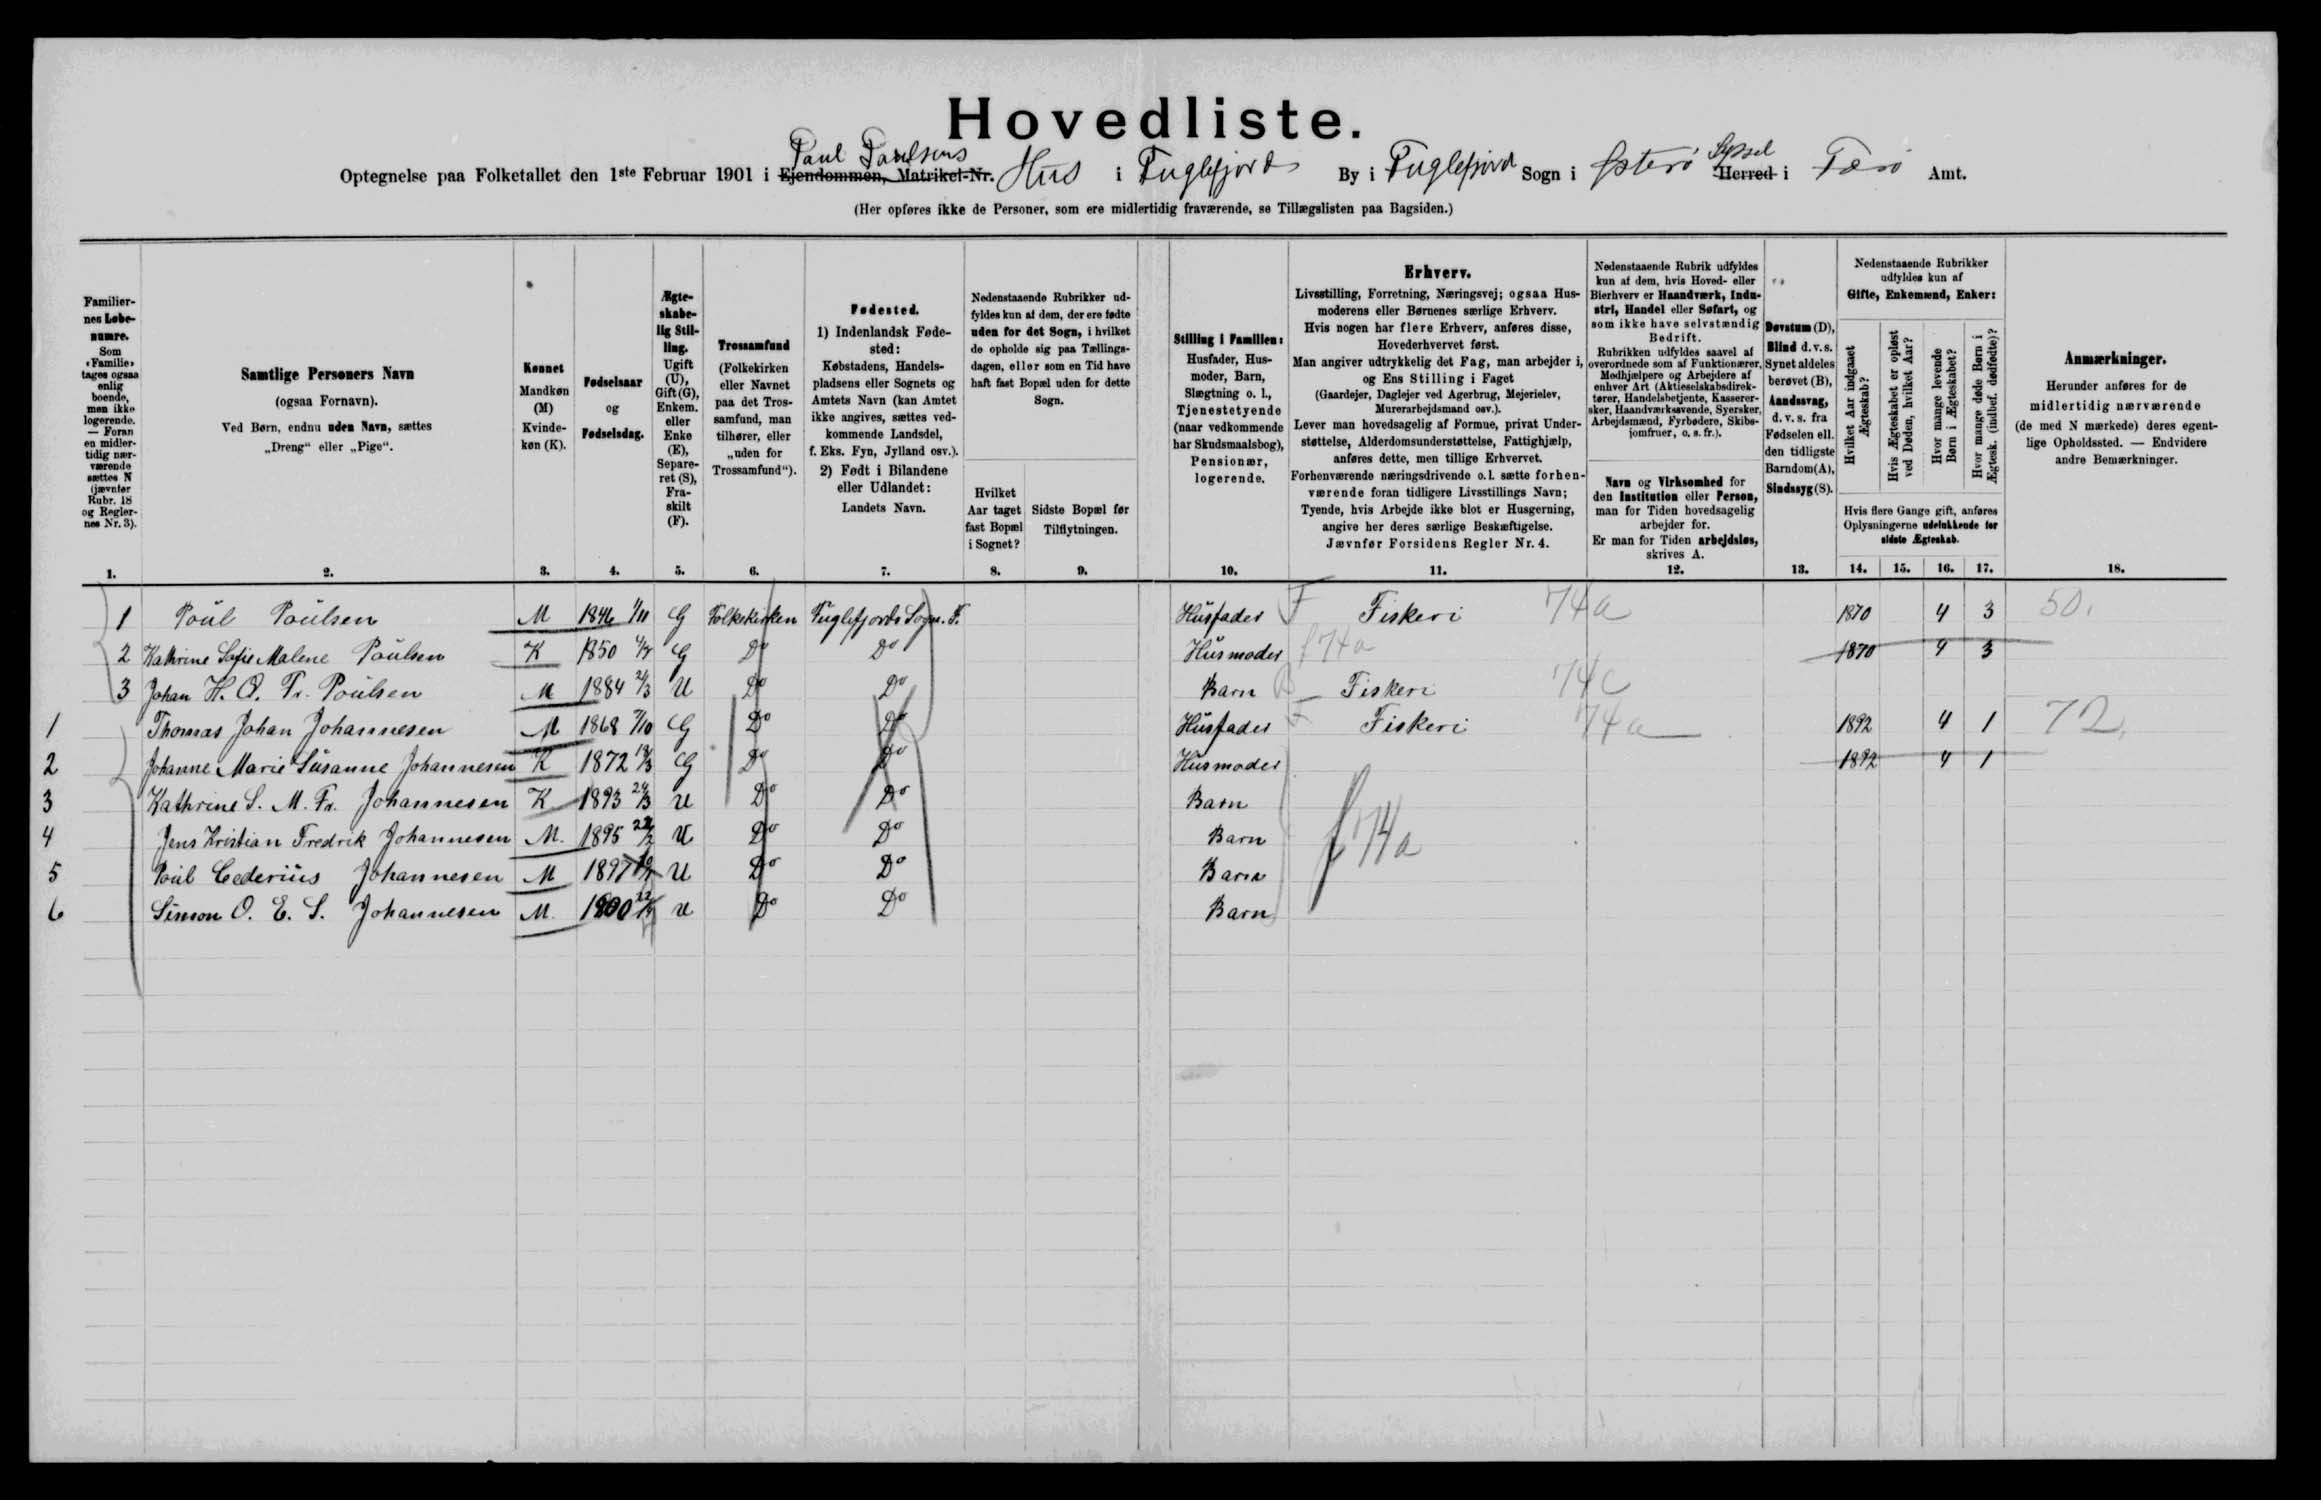 Hovedliste.
Paul Paulsens
Optegnelse paa Folketallet den 1ste Februar 1901 i Ejendommen, Matrikel-Nr. Hus i Fuglefjord By i Fuglefjord Sogn i Østerø Herred Syssel i Færø Amt.
(Her opføres ikke de Personer, som ere midlertidig fraværende, se Tillægslisten paa Bagsiden.)
Familiernes Løbenumre.
Som «Familie» tages ogsaa enlig boende, men ikke logerende. — Foran en midlertidig nærværende sættes N (jævnfør Rubr. 18 og Reglernes Nr. 3).
1.
Samtlige Personers Navn
(ogsaa Fornavn).
Ved Børn, endnu uden Navn, sættes
„Dreng“ eller „Pige“.
2.
Kønnet
Mandkøn (M)
Kvindekøn (K).
3.
Fødselsaar
og
Fødselsdag.
4.
Ægteskabelig Stilling.
Ugift (U), Gift (G), Enkem. eller Enke (E), Separeret (S), Fraskilt (F).
5.
Trossamfund
(Folkekirken eller Navnet paa det Trossamfund, man tilhører, eller „uden for Trossamfund“).
6.
Fødested.
1) Indenlandsk Fødested:
Købstadens, Handelspladsens eller Sognets og Amtets Navn (kan Amtet ikke angives, sættes vedkommende Landsdel, f. Eks. Fyn, Jylland osv.).
2) Født i Bilandene eller Udlandet:
Landets Navn.
7.
Nedenstaaende Rubrikker udfyldes kun af dem, der ere fødte uden for det Sogn, i hvilket de opholde sig paa Tællingsdagen, eller som en Tid have haft fast Bopæl uden for dette Sogn.
Hvilket Aar taget fast Bopæl i Sognet?
8.
Sidste Bopæl før Tilflytningen.
9.
Stilling i Familien:
Husfader, Husmoder, Barn, Slægtning o. l., Tjenestetyende (naar vedkommende har Skudsmaalsbog), Pensionær, logerende.
10.
Erhverv.
Livsstilling, Forretning, Næringsvej; ogsaa Husmoderens eller Børnenes særlige Erhverv.
Hvis nogen har flere Erhverv, anføres disse, Hovederhvervet først.
Man angiver udtrykkelig det Fag, man arbejder i, og Ens Stilling i Faget
(Gaardejer, Daglejer ved Agerbrug, Mejerielev, Murerarbejdsmand osv.).
Lever man hovedsagelig af Formue, privat Understøttelse, Alderdomsunderstøttelse, Fattighjælp, anføres dette, men tillige Erhvervet.
Forhenværende næringsdrivende o. l. sætte forhenværende foran tidligere Livsstillings Navn; Tyende, hvis Arbejde ikke blot er Husgerning, angive her deres særlige Beskæftigelse.
Jævnfør Forsidens Regler Nr. 4.
11.
Nedenstaaende Rubrik udfyldes kun af dem, hvis Hoved- eller Bierhverv er Haandværk, Industri, Handel eller Søfart, og som ikke have selvstændig Bedrift.
Rubrikken udfyldes saavel af overordnede som af Funktionærer, Medhjælpere og Arbejdere af enhver Art (Aktieselskabsdirektører, Handelsbetjente, Kasserersker, Haandværkssvende, Syersker, Arbejdsmænd, Fyrbødere, Skibsjomfruer, o. s. fr.).
Navn og Virksomhed for den Institution eller Person, man for Tiden hovedsagelig arbejder for.
Er man for Tiden arbejdsløs, skrives A.
12.
Døvstum (D), Blind d. v. s. Synet aldeles berøvet (B), Aandssvag, d. v. s. fra Fødselen ell. den tidligste Barndom (A), Sindssyg (S).
13.
Nedenstaaende Rubrikker udfyldes kun af
Gifte, Enkemænd, Enker:
Hvilket Aar indgaaet Ægteskab?
Hvis Ægteskabet er opløst ved Døden, hvilket Aar?
Hvor mange levende Børn i Ægteskabet?
Hvor mange døde Børn i Ægtesk. (indbef. dødfødte)?
Hvis flere Gange gift, anføres Oplysningerne udelukkende for sidste Ægteskab.
14. 15. 16. 17.
Anmærkninger.
Herunder anføres for de midlertidig nærværende (de med N mærkede) deres egentlige Opholdssted. — Endvidere andre Bemærkninger.
18.
1 Poul Poulsen M 1846 1/11 G Folkekirken Fuglefjords Sogn. F. Husfader F Fiskeri 74a 1870 4 3 50.
2 Kathrine Sofie Malene Poulsen K 1850 G Do Do Husmoder f 74a 1870 4 3
3 Johan H. O. Fr. Poulsen M 1884 21/3 U Do Do Barn B — Fiskeri 74c
1 Thomas Johan Johannesen M 1868 7/10 G Do Do Husfader F Fiskeri 74a 1892 4 1 72.
2 Johanne Marie Susanne Johannesen K 1872 18/3 G Do Do Husmoder 1892 4 1
3 Kathrine S. M. Fr. Johannesen K 1893 24/3 U Do Do Barn
4 Jens Kristian Fredrik Johannesen M. 1895 U Do Do Barn f 74a
5 Poul Cederius Johannesen M 1897 U Do Do Barn
6 Simon O. E. S. Johannesen M. 1900 U Do Do Barn